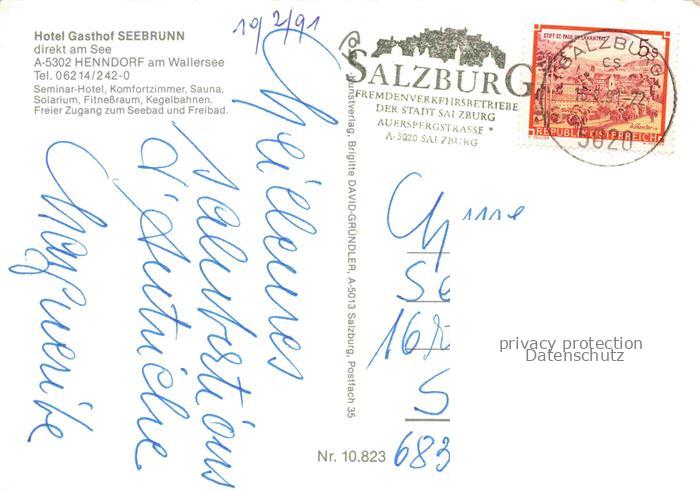 Hotel Gasthof SEEBRUNN
direkt am See
A-5302 HENNDORF am Wallersee
Tel. 06214/242-0
Seminar-Hotel, Komfortzimmer, Sauna,
Solarium, Fitneßraum, Kegelbahnen.
Freier Zugang zum Seebad und Freibad.
19/2/91
Meilleures
salutations
d'Autriche
Marguerite
Kunstverlag, Brigitte DAVID-GRÜNDLER, A-5013 Salzburg, Postfach 35
Nr. 10.823
SALZBURG
FREMDENVERKEHRSBETRIEBE
DER STADT SALZBURG
AUERSPERGSTRASSE
A-5020 SALZBURG
STIFT ST. PAUL IM LAVANTTAL
5s
REPUBLIK ÖSTERREICH
SALZBURG
CS
5020
683
privacy protection
Datenschutz